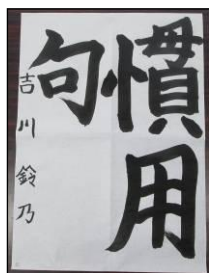 慣用
句
吉川鈴乃